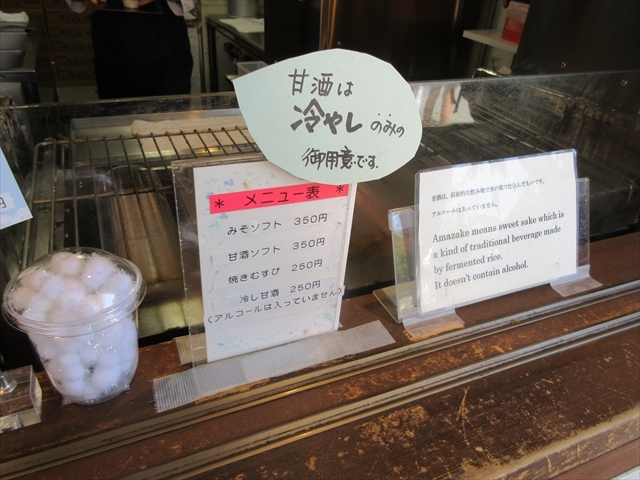 甘酒は
冷やし のみの
御用意です。
* メニュー表 *
みそソフト 350円
甘酒ソフト 350円
焼きむすび 250円
冷し甘酒 250円
(アルコールは入っていません)
甘酒は、伝統的な飲み物で米の麹で仕込んだものです。
アルコールは入っていません。
Amazake means sweet sake which is
a kind of traditional beverage made
by fermented rice.
It doesn't contain alcohol.
円